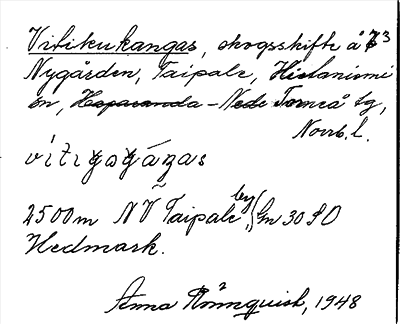 Vitikukangas, skogsskifte å 7³
Nygården, Taipale, Hietaniemi
sn, Haparanda - Nede Torneå tg,
Norrb. l.
vítiǥoǥáŋas
2500 m NV Taipale by, Gm 30 SO
Hedmark.
Anna Rönnquist, 1948